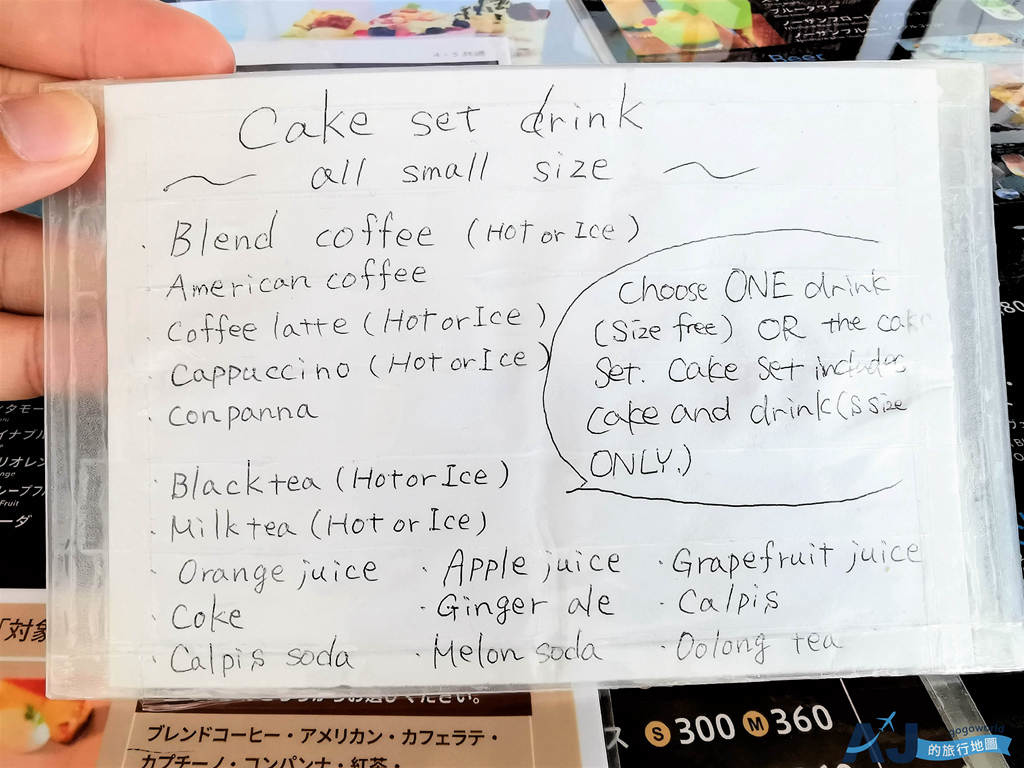 ブルータワー
ノーザンフルー
Beer
Cake set drink
~ all small size ~
· Blend coffee (Hot or Ice)
· American coffee
· Coffee latte (Hot or Ice)
· Cappuccino (Hot or Ice)
· Conpanna
Choose ONE drink
(Size free) OR the cake
Set. Cake set includes
cake and drink (S size
ONLY.)
· Black tea (Hot or Ice)
· Milk tea (Hot or Ice)
· Orange juice · Apple juice · Grapefruit juice
· Coke · Ginger ale · Calpis
· Calpis soda · Melon soda · Oolong tea
「対象
ブレンドコーヒー・アメリカン・カフェラテ・
カプチーノ・コンパンナ・紅茶・
ス S 300 M 360
AJ gogoworld
的旅行地圖